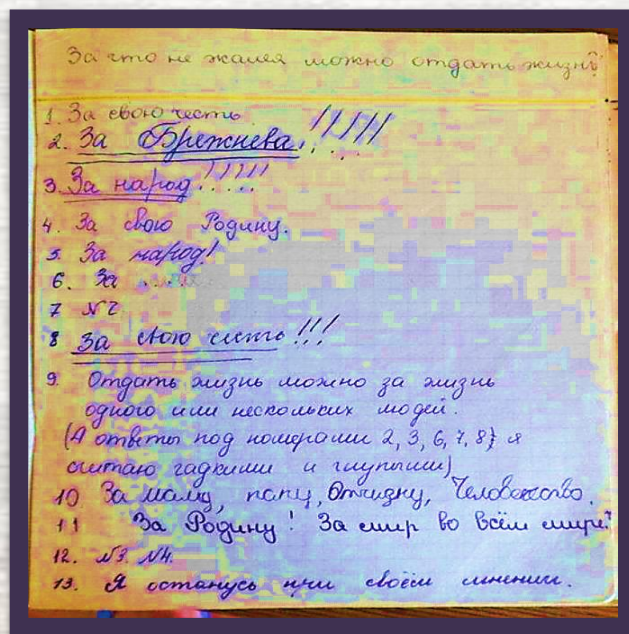 За что не жалея можно отдать жизнь?
1. За свою честь.
2. За Брежнева!!!!!
3. За народ!!!!!
4. За свою Родину.
5. За народ!
6. За
7 №2
8 За свою честь!!!
9. Отдать жизнь можно за жизнь
одного или нескольких людей.
(А ответы под номерами 2, 3, 6, 7, 8} я
считаю гадкими и глупыми)
10 За маму, папу, Отчизну, Человечество.
11 За Родину! За мир во всём мире!
12. №3. №4.
13. Я останусь при своём мнении.